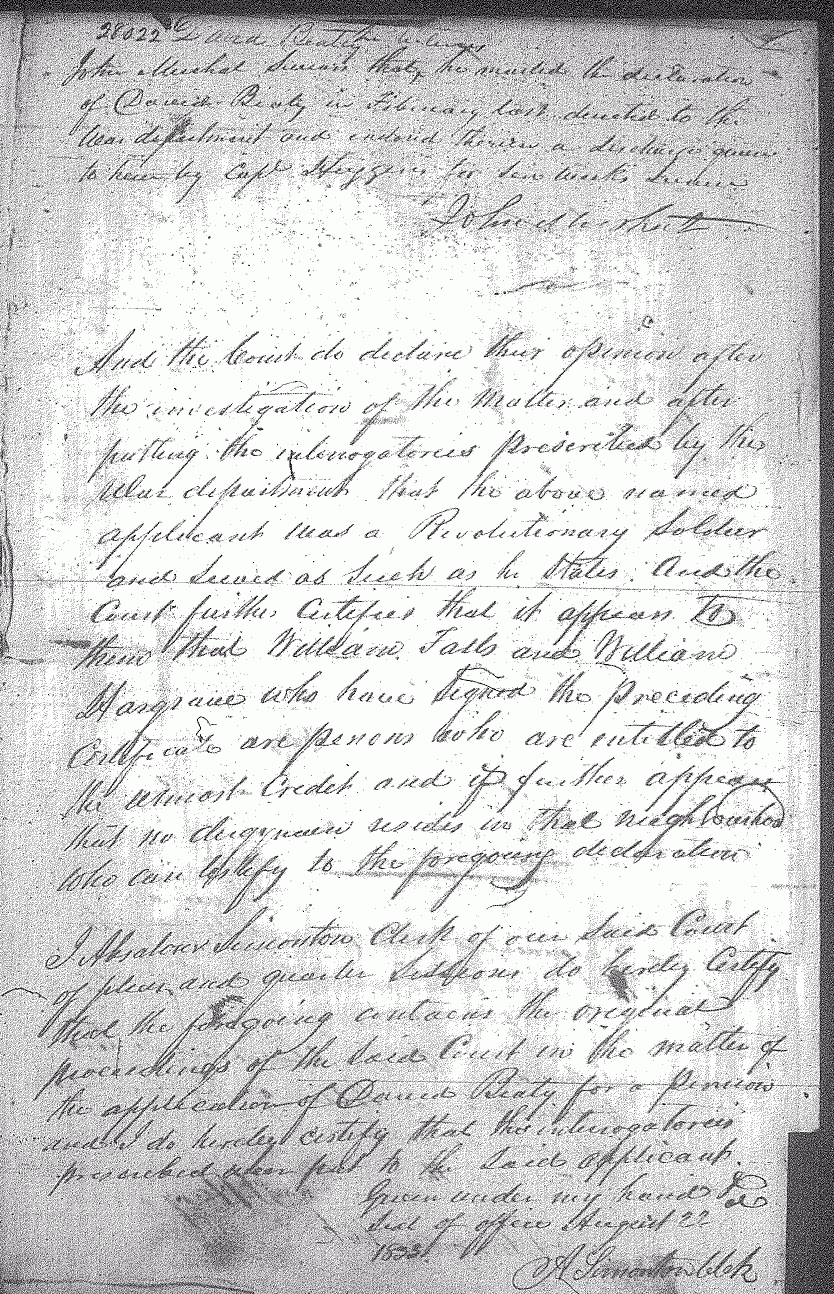 28022 David Beaty
John Mushat Swears that he mailed the declaration
of David Beaty in February last directed to the
War department and inclosed therein a discharge given
to him by Capt Huggins for ten weeks
John Mushat
And the Court do declare their opinion after
the investigation of the Matter and after
putting the interrogatories prescribed by the
War department that the above named
applicant was a Revolutionary Soldier
and Served as Such as he States. And the
Court further Certifies that it appears to
them that William Falls and William
Hargrave who have Signed the preceding
Certificate are persons who are entitled to
the utmost Credit and it further appears
that no clergyman resides in that neighbourhood
who can testify to the foregoing declaration
I Absalom Simonton Clerk of our Said Court
of pleas and quarter Sessions do hereby Certify
that the foregoing contains the original
proceedings of the Said Court in the matter of
the application of David Beaty for a pension
and I do hereby certify that the interrogatories
prescribed were put to the Said applicant.
Given under my hand &
Seal of office August 22
1833
A Simonton Clk